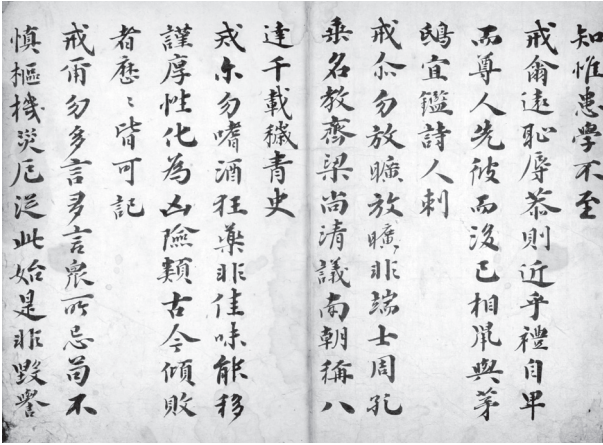 知惟患學不至
戒爾遠恥辱恭則近乎禮自卑
而尊人先彼而後己相鼠與茅
鴟宜鑑詩人刺
戒尒勿放曠放曠非端士周孔
垂名教齊梁尚清議南朝稱八
達千載穢青史
戒尒勿嗜酒狂藥非佳味能移
謹厚性化為凶險類古今傾敗
者歷〻皆可記
戒爾勿多言多言衆所忌苟不
慎樞機災厄從此始是非毀譽